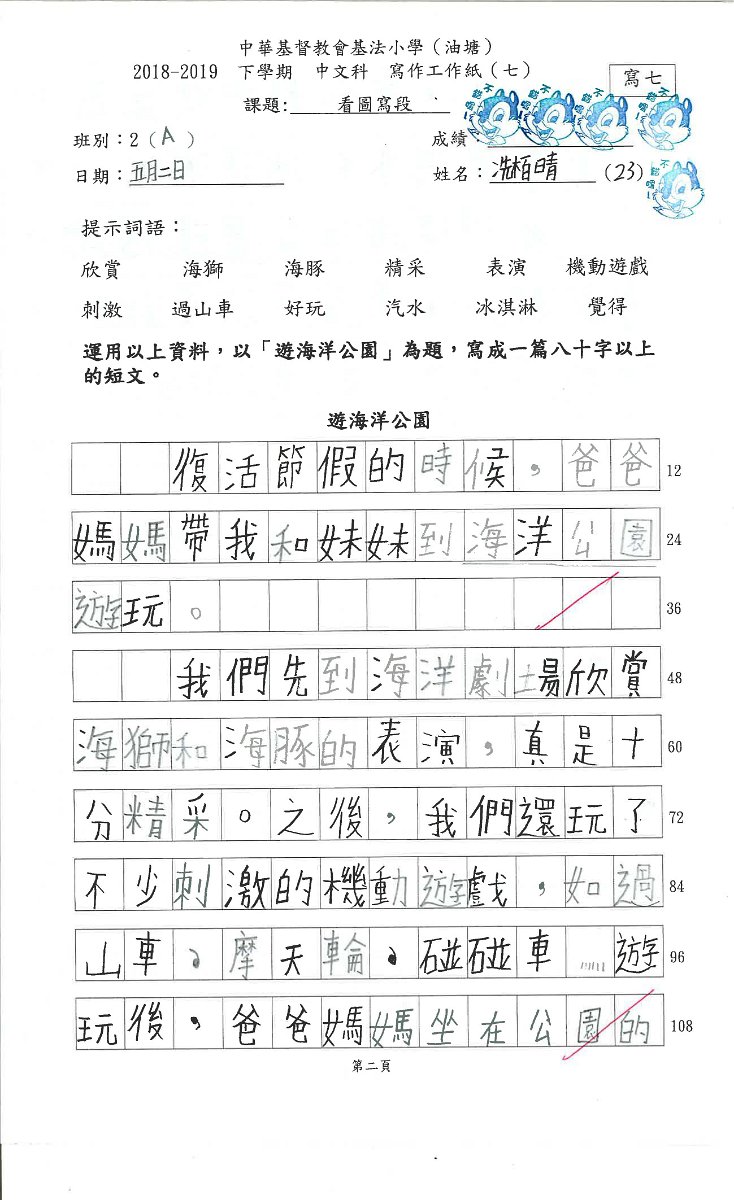 中華基督教會基法小學（油塘）
2018-2019 下學期 中文科 寫作工作紙（七）
寫七
課題: 看圖寫段
班別：2（A）
成績：
日期：五月二日
姓名：冼栢晴 (23)
提示詞語：
欣賞 海獅 海豚 精采 表演 機動遊戲
刺激 過山車 好玩 汽水 冰淇淋 覺得
運用以上資料，以「遊海洋公園」為題，寫成一篇八十字以上
的短文。
遊海洋公園
復活節假的時候，爸爸 12
媽媽帶我和妹妹到海洋公園 24
遊玩。 36
我們先到海洋劇場欣賞 48
海獅和海豚的表演，真是十 60
分精采。之後，我們還玩了 72
不少刺激的機動遊戲，如過 84
山車、摩天輪、碰碰車……遊 96
玩後，爸爸媽媽坐在公園的 108
第二頁